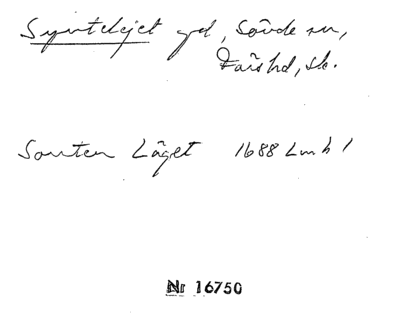 Syntelejet gd, Sövde sn,
Färs hd, Sk.
Sonten Läget 1688 Lmh 1
Nr 16750